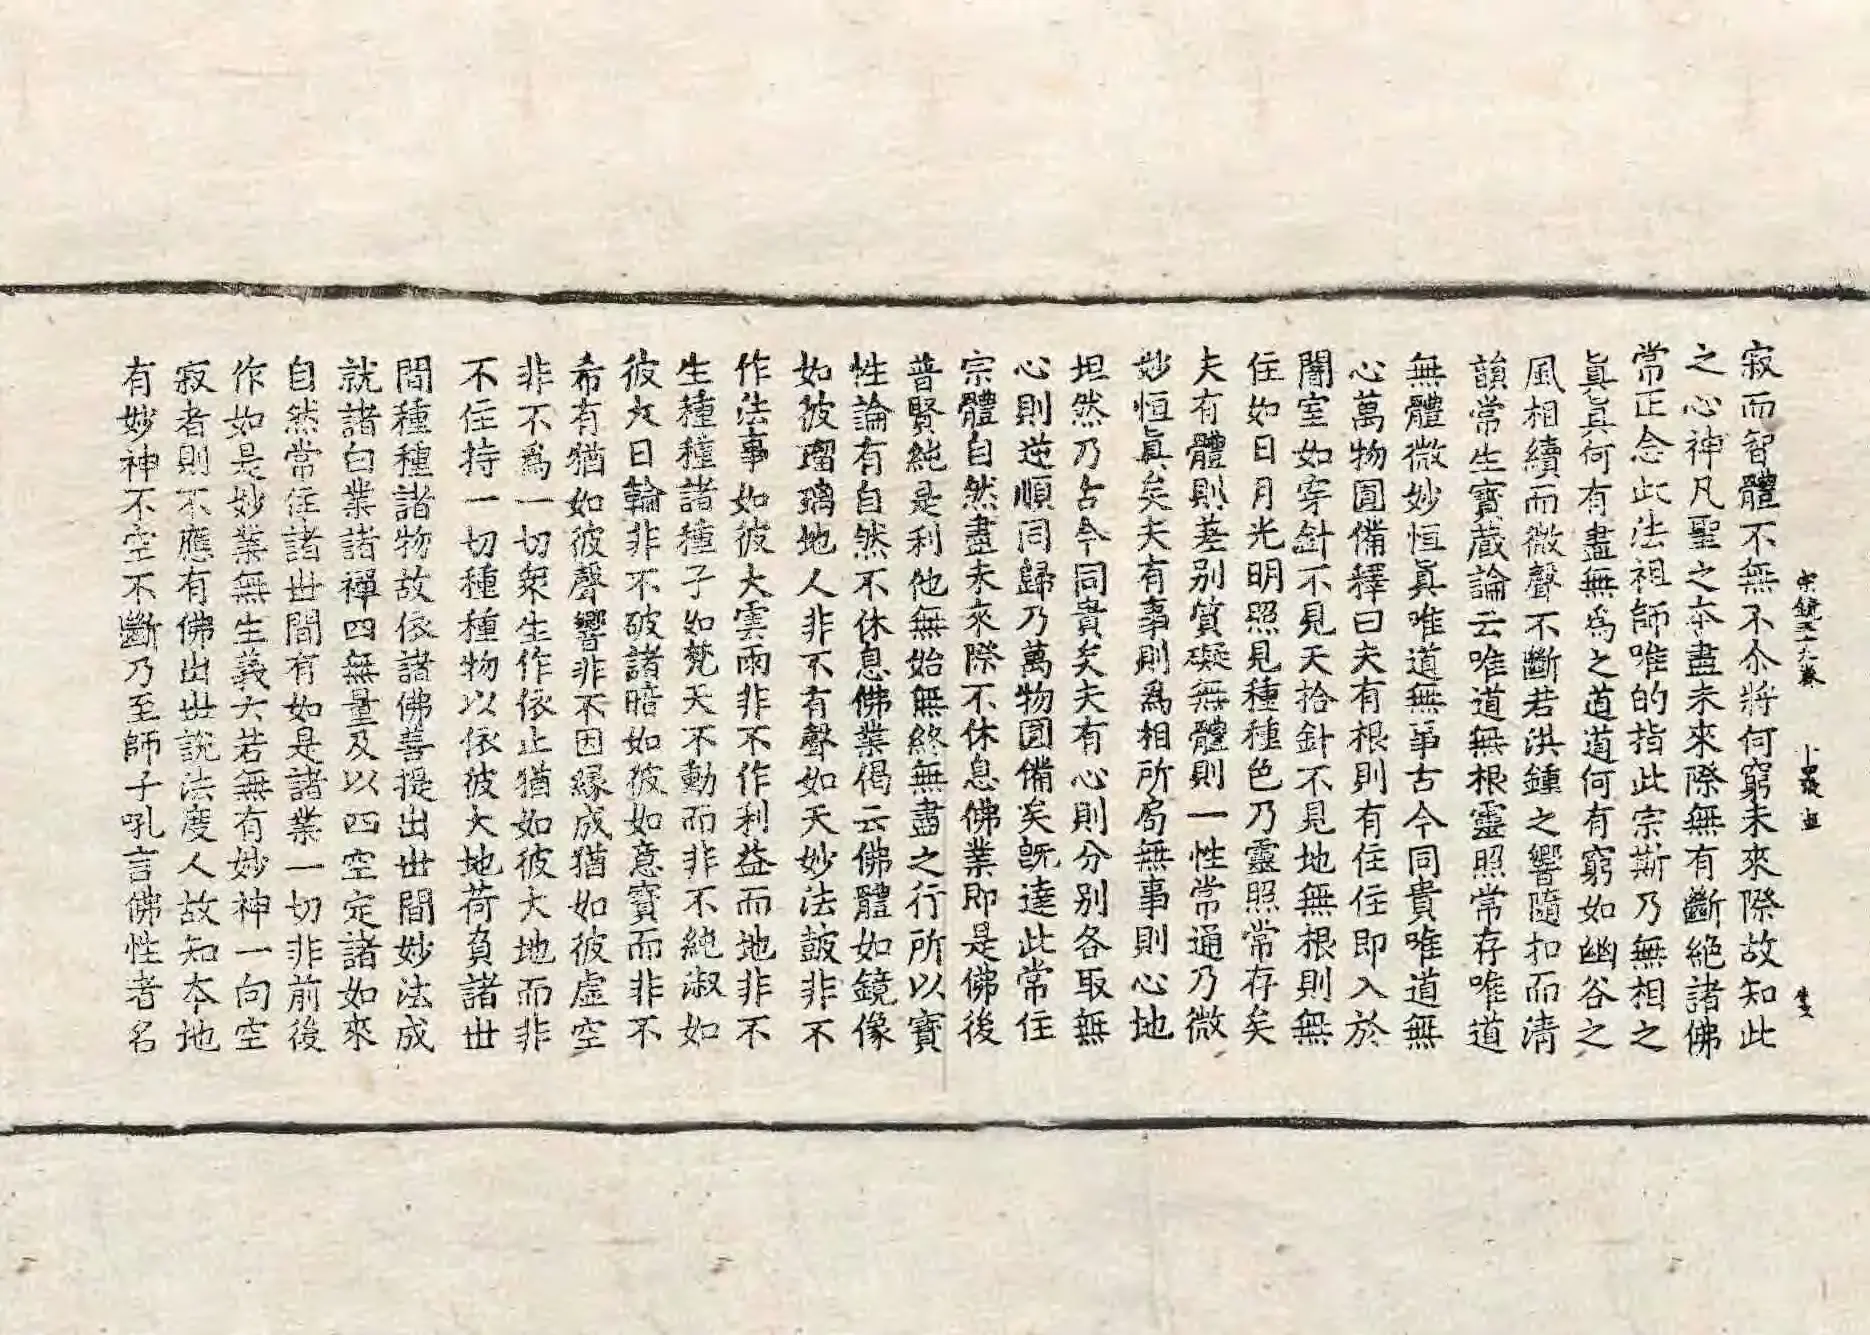 宗鏡
寂而智體不無不尒將何窮未來際故知此
之心神凡聖之本盡未來際無有斷絕諸佛
常正念此法祖師唯的指此宗斯乃無相之
眞眞何有盡無爲之道道何有窮如幽谷之
風相續而微聲不斷若洪鍾之響隨扣而淸
韻常生寶藏論云唯道無根靈照常存唯道
無體微妙恒眞唯道無事古今同貴唯道無
心萬物圓備釋曰夫有根則有住住即入於
闇室如穿針不見天拾針不見地無根則無
住如日月光明照見種種色乃靈照常存矣
夫有體則差別質礙無體則一性常通乃微
妙恒眞矣夫有事則爲相所局無事則心地
坦然乃古今同貴矣夫有心則分別各取無
心則逆順同歸乃萬物圓備矣旣達此常住
宗體自然盡未來際不休息佛業即是佛後
普賢純是利他無始無終無盡之行所以寶
性論有自然不休息佛業偈云佛體如鏡像
如彼瑠璃地人非不有聲如天妙法鼓非不
作法事如彼大雲雨非不作利益而地非不
生種種諸種子如梵天不動而非不純淑如
彼大日輪非不破諸暗如彼如意寶而非不
希有猶如彼聲響非不因緣成猶如彼虛空
非不爲一切衆生作依止猶如彼大地而非
不住持一切種種物以依彼大地荷負諸世
間種種諸物故依諸佛菩提出世間妙法成
就諸白業諸禪四無量及以四空定諸如來
自然常住諸世間有如是諸業一切非前後
作如是妙業無生義大若無有妙神一向空
寂者則不應有佛出世說法度人故知本地
有妙神不空不斷乃至師子吼言佛性者名